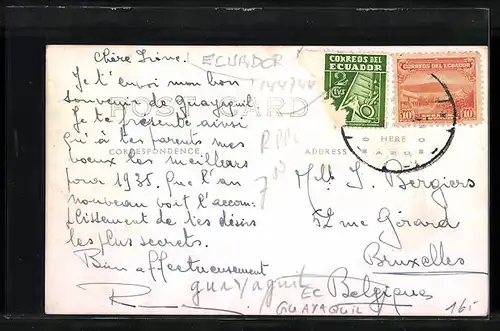 Chère Irène.
Je t'envoi mon bon
souvenir de Guayaquil
Je te présente ainsi
qu'à tes parents mes
voeux les meilleurs
pour 1935. Que l'an
nouveau voit l'accom-
plissement de tes désirs
les plus secrets.
Bien affectueusement
R
ECUADOR
POST CARD
CORRESPONDENCE
ADDRESS
HERE
RPPC
7.00
CORREOS DEL
ECUADOR
2
CORREOS DEL ECUADOR
10
10
Melle I. Bergiers
52 rue Gérard
Bruxelles
Belgique
guayaquil
EC
GUAYAQUIL
16.-